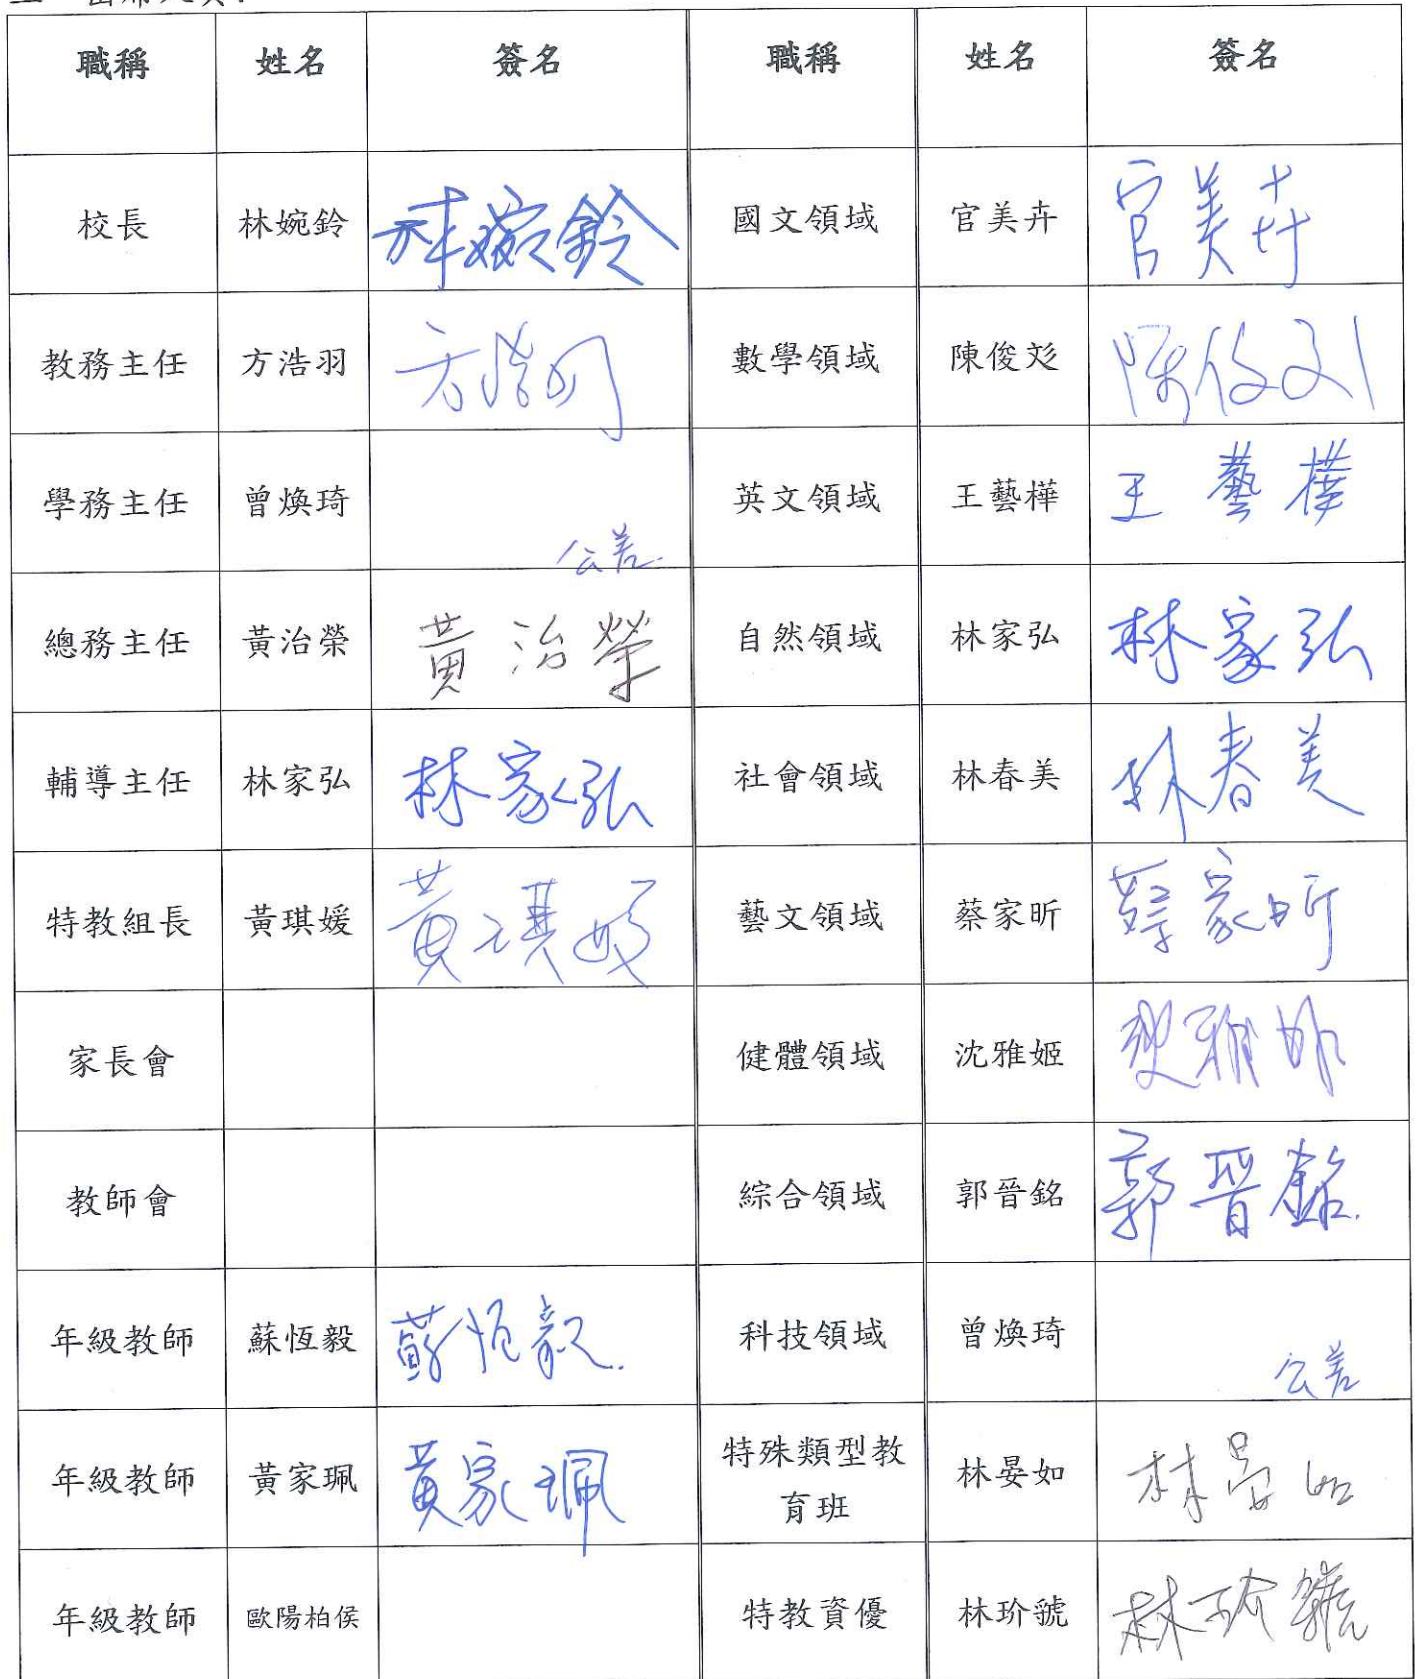 職稱 姓名 簽名 職稱 姓名 簽名
校長 林婉鈴 林婉鈴 國文領域 官美卉 官美卉
教務主任 方浩羽 方浩羽 數學領域 陳俊彣 陳俊彣
學務主任 曾煥琦 公差. 英文領域 王藝樺 王藝樺
總務主任 黃治榮 黃治榮 自然領域 林家弘 林家弘
輔導主任 林家弘 林家弘 社會領域 林春美 林春美
特教組長 黃琪媛 黃琪媛 藝文領域 蔡家昕 蔡家昕
家長會 健體領域 沈雅姬
教師會 綜合領域 郭晉銘 郭晉銘.
年級教師 蘇恆毅 蘇恆毅. 科技領域 曾煥琦 公差
年級教師 黃家珮 黃家珮 特殊類型教
育班 林晏如 林晏如
年級教師 歐陽柏侯 特教資優 林玠號 林玠號